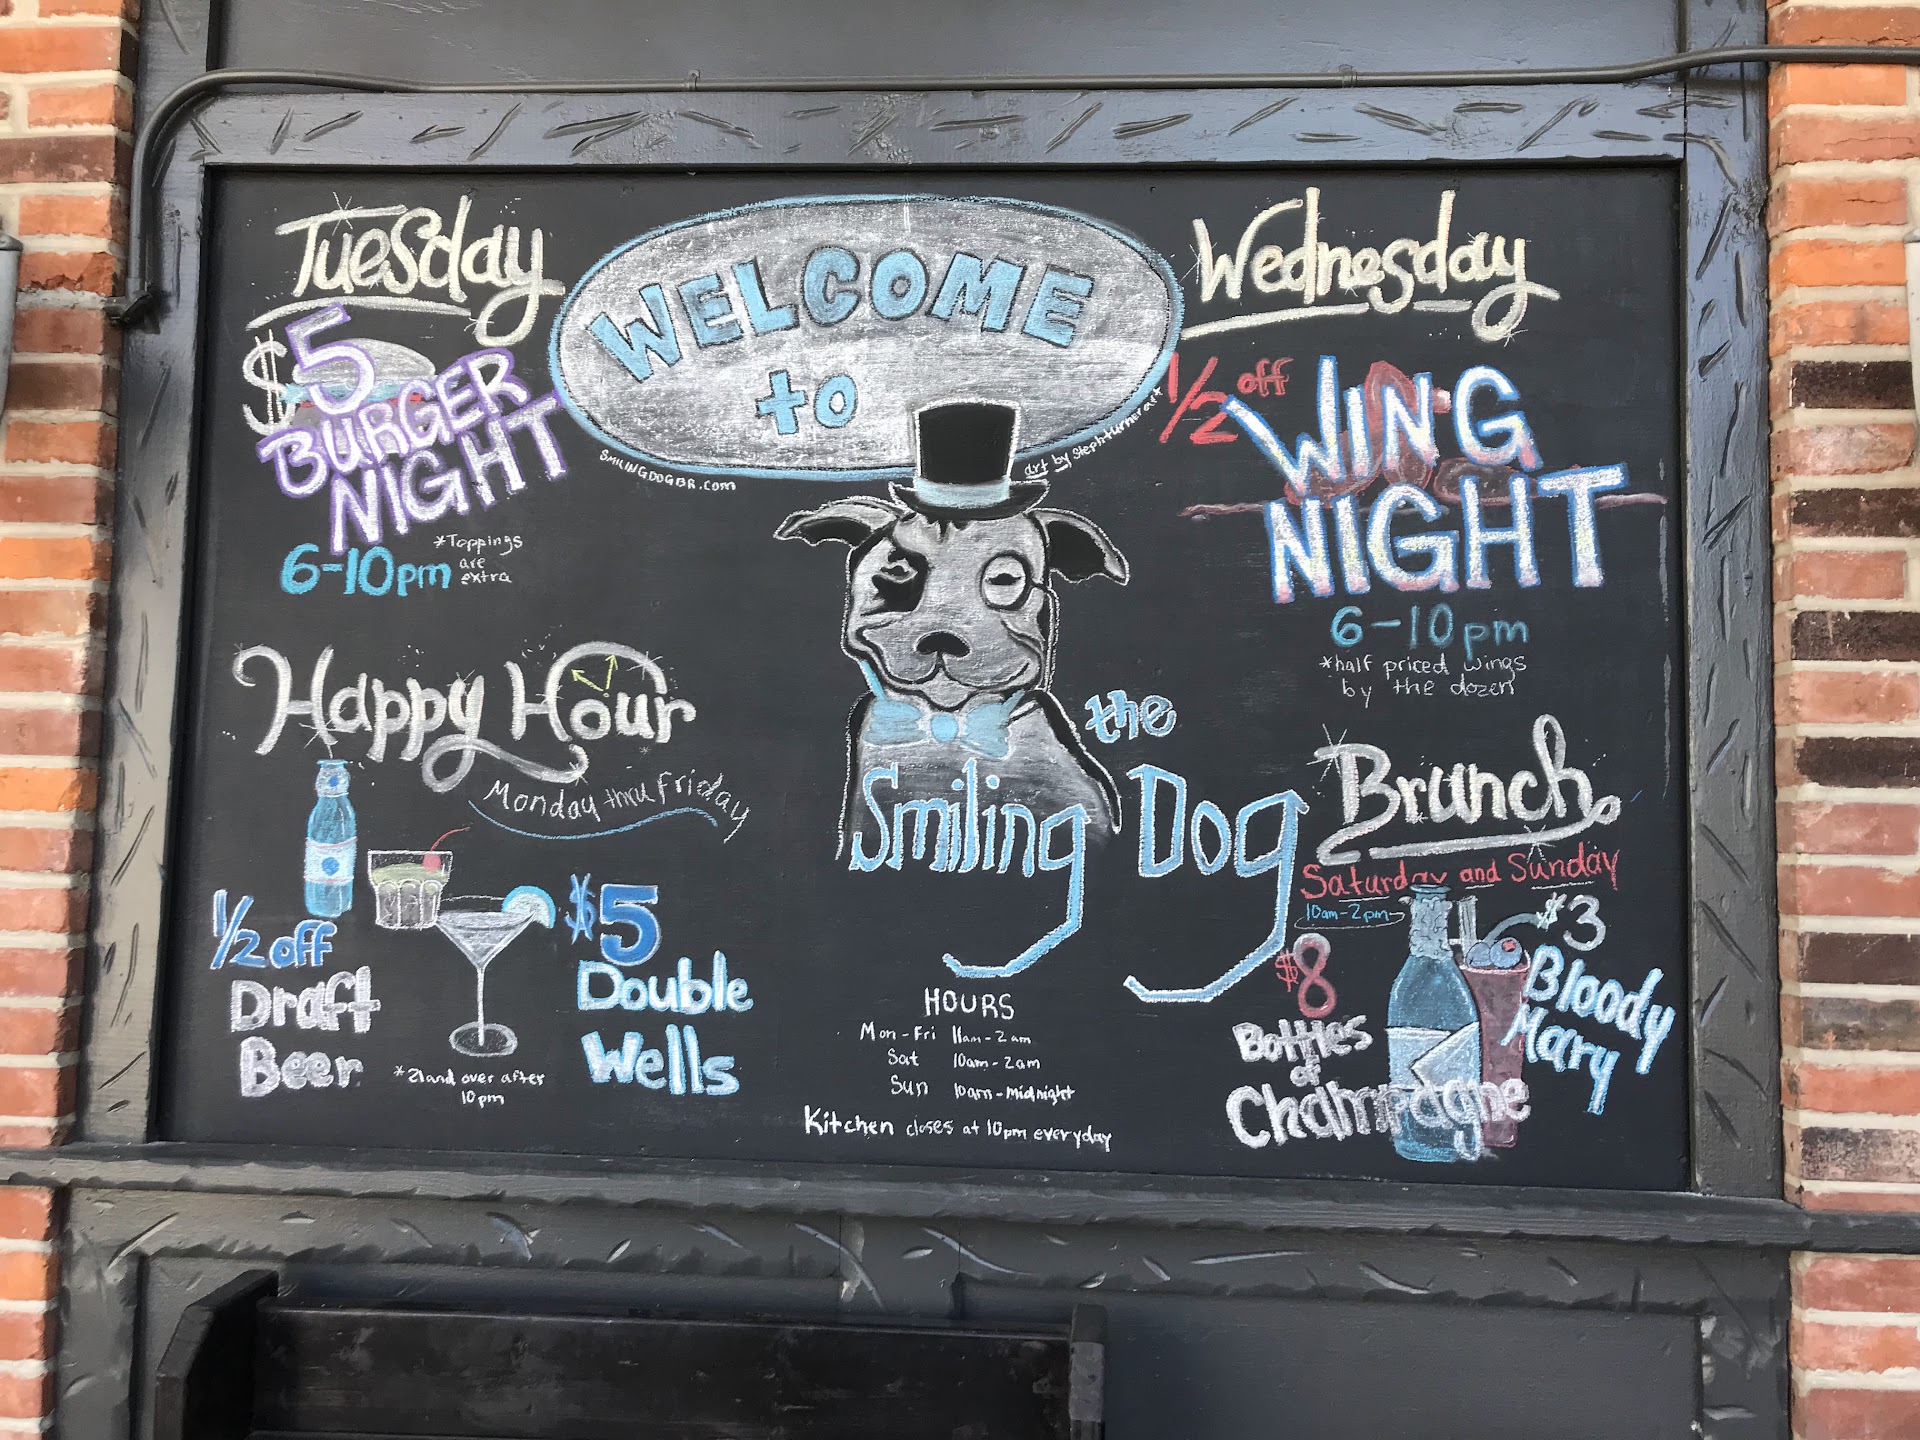 Tuesday
$5
BURGER
NIGHT
6-10pm
*Toppings
are
extra
WELCOME
to
SMILINGDOGBR.com
art by stephturnerart
the
Smiling Dog
Wednesday
1/2 off
WING
NIGHT
6-10pm
*half priced wings
by the dozen
Happy Hour
Monday thru Friday
1/2 off
Draft
Beer
$5
Double
Wells
*21 and over after
10pm
HOURS
Mon-Fri 11am-2am
Sat 10am-2am
Sun 10am-midnight
Kitchen closes at 10pm everyday
Brunch
Saturday and Sunday
10am-2pm
$8
Bottles
of
Champagne
$3
Bloody
Mary